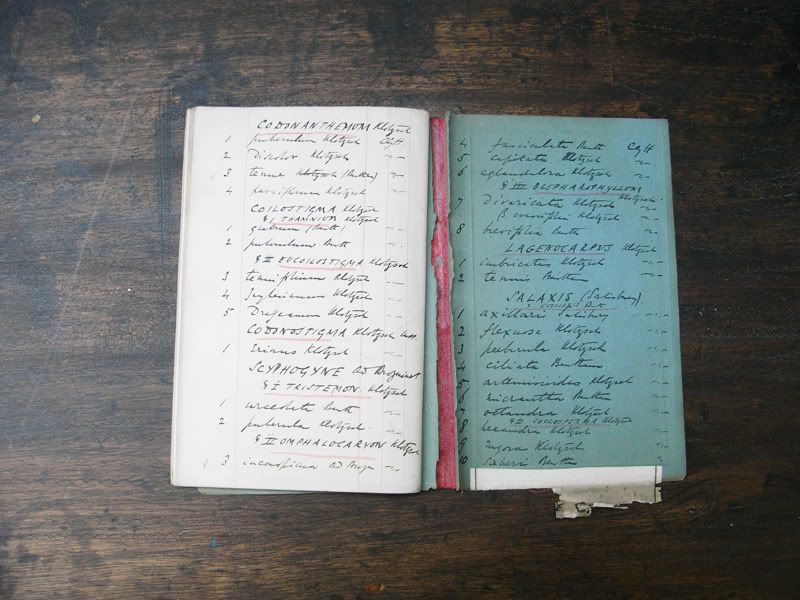 CODONANTHEMUM Klotzsch
1 puberulum Klotzsch CGH
2 Discolor Klotzsch "
3 tenue Klotzsch (Benth) "
4 parviflorum Klotzsch "
COILOSTIGMA Klotzsch
§ I THAMNIUM Klotzsch
1 glabrum (Benth) "
2 puberulum Benth "
§ II EUCOILOSTIGMA Klotzsch
3 tenuifolium Klotzsch "
4 Zeyherianum Klotzsch "
5 Dregeanum Klotzsch "
CODONOSTIGMA Klotzsch
1 Erinus Klotzsch "
SCYPHOGYNE AD Brongniart
§ I TRISTEMON Klotzsch
1 urceolata Benth "
2 puberula Klotzsch "
§ II OMPHALOCARYON Klotzsch
3 inconspicua AD Brongn "
4 fasciculata Benth CGH
5 capitata Klotzsch "
6 eglandulosa Klotzsch "
§ III BLEPHAROPHYLLUM Klotzsch
7 Divaricata Klotzsch
β Klotzsch "
8 brevifolia Benth "
LAGENOCARPUS Klotzsch
1 imbricatus Klotzsch "
2 tenuis Bentham "
SALAXIS (Salisbury)
§
1 axillaris Salisbury "
2 flexuosa Klotzsch "
3 puberula Klotzsch "
4 ciliata Bentham "
5 artemisioides Klotzsch "
6 micrantha Bentham "
7 octandra Klotzsch "
§ II COCCOSPERMA Klotzsch
8 hexandra Klotzsch "
9 rugosa Klotzsch "
10 Sieberi Bentham "